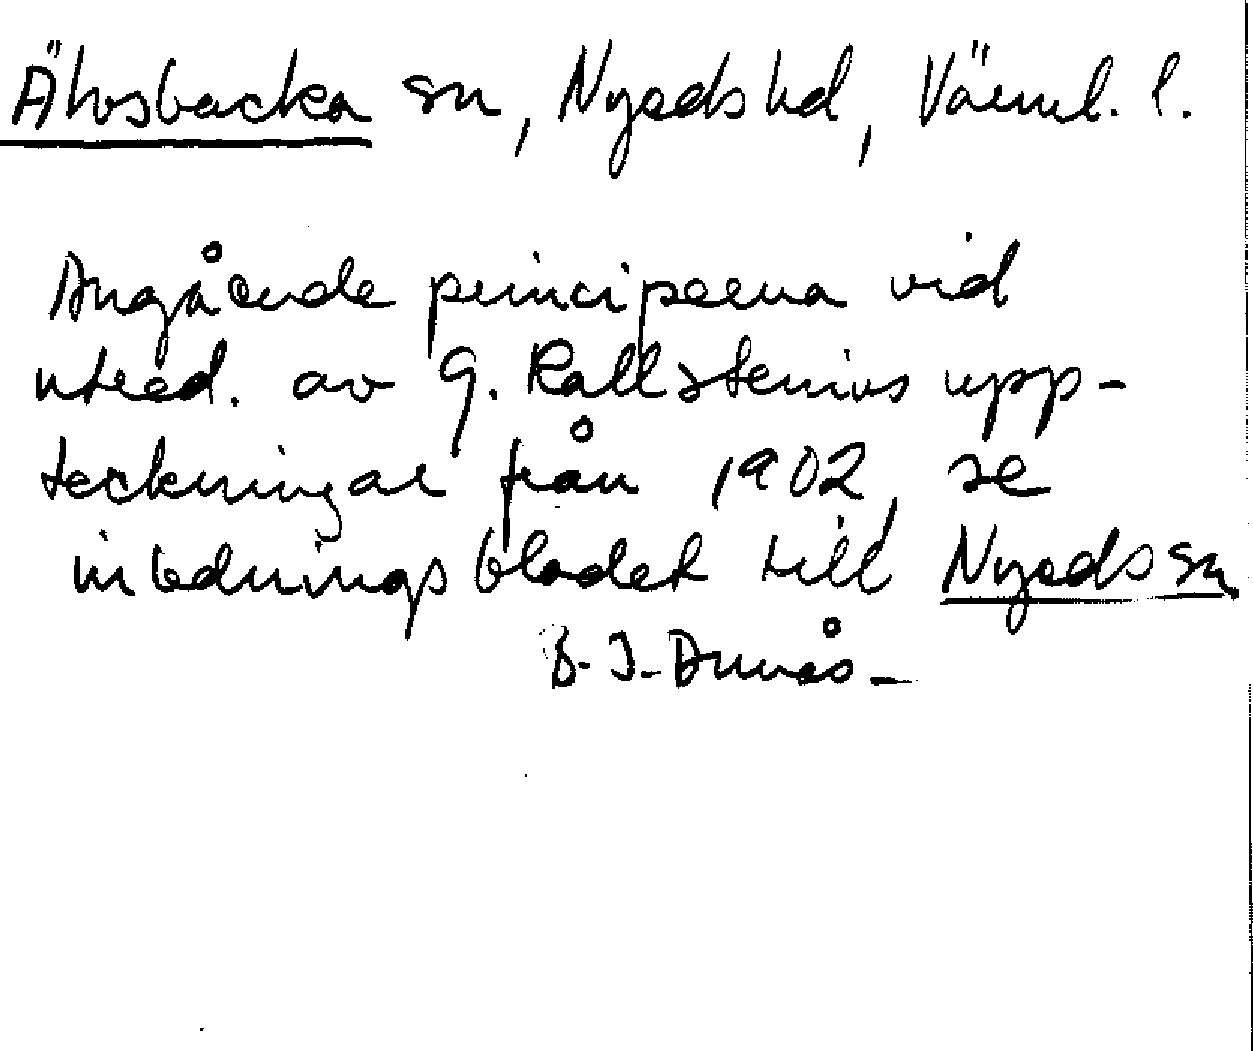 Älvsbacka sn, Nyeds hd, Värml. l.
Angående principerna vid
utred. av G. Kallstenius upp-
teckningar från 1902, se
inledningsbladet till Nyeds sn
B-J-